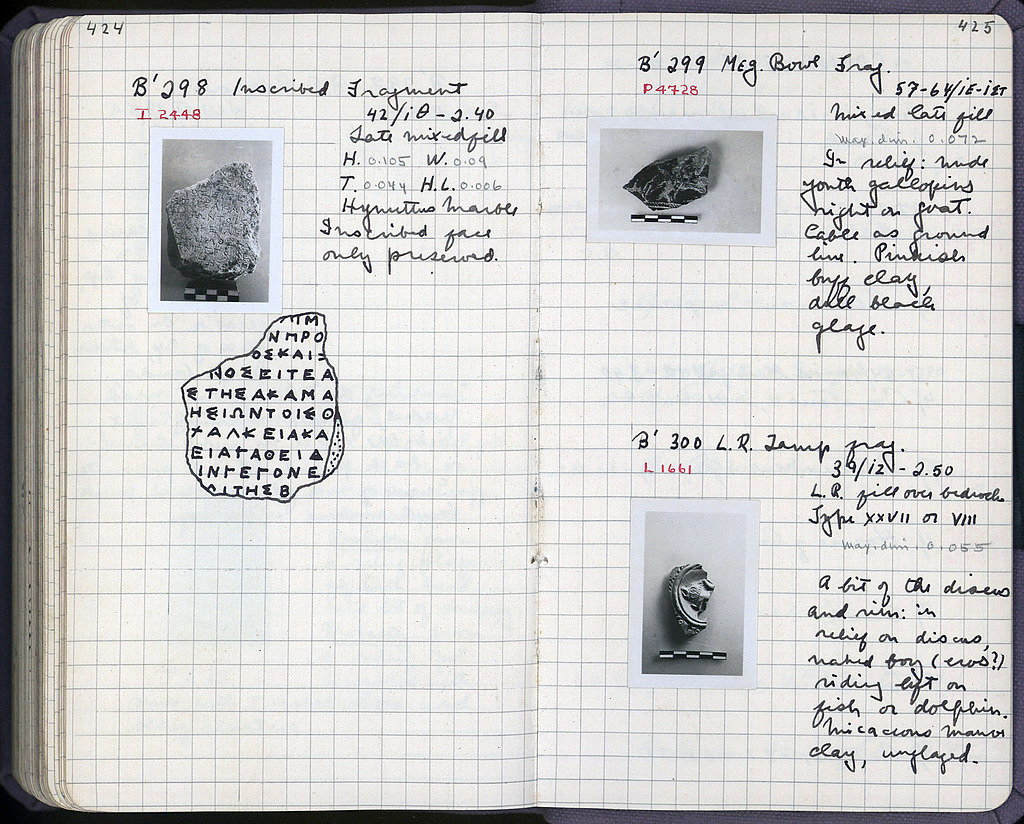 424
B' 298 Inscribed Fragment
I 2448
42/ιθ - 2.40
Late mixed fill
H. 0.105 W. 0.09
T. 0.044 H.L. 0.006
Hymettus Marble
Inscribed face
only preserved.
ΙΜ
ΝΠΡΟ
ΟΣΚΑΙ
ΝΟΣΕΙΤΕΑ
ΣΤΗΣΑΚΑΜΑ
ΗΣΙΩΝΤΟΙΣΘ
ΧΑΛΚΕΙΑΚΑ
ΕΙΑΓΑΘΕΙΔ
ΙΝΓΕΓΟΝΕ
ΙΤΗΣΒ
425
B' 299 Meg. Bowl Frag.
P 4728
57-64/ιΕ-ιΣΤ
Mixed late fill
Max. dim. 0.072
In relief: nude
youth galloping
right on goat.
Cable as ground
line. Pinkish
buff clay,
dull black
glaze.
B' 300 L.R. Lamp frag.
L 1661
39/ιζ - 2.50
L.R. fill over bedrock
Type XXVII or VIII
Max. dim. 0.055
A bit of the discus
and rim: in
relief on discus,
naked boy (eros?)
riding left on
fish or dolphin.
Micaceous mauve
clay, unglazed.